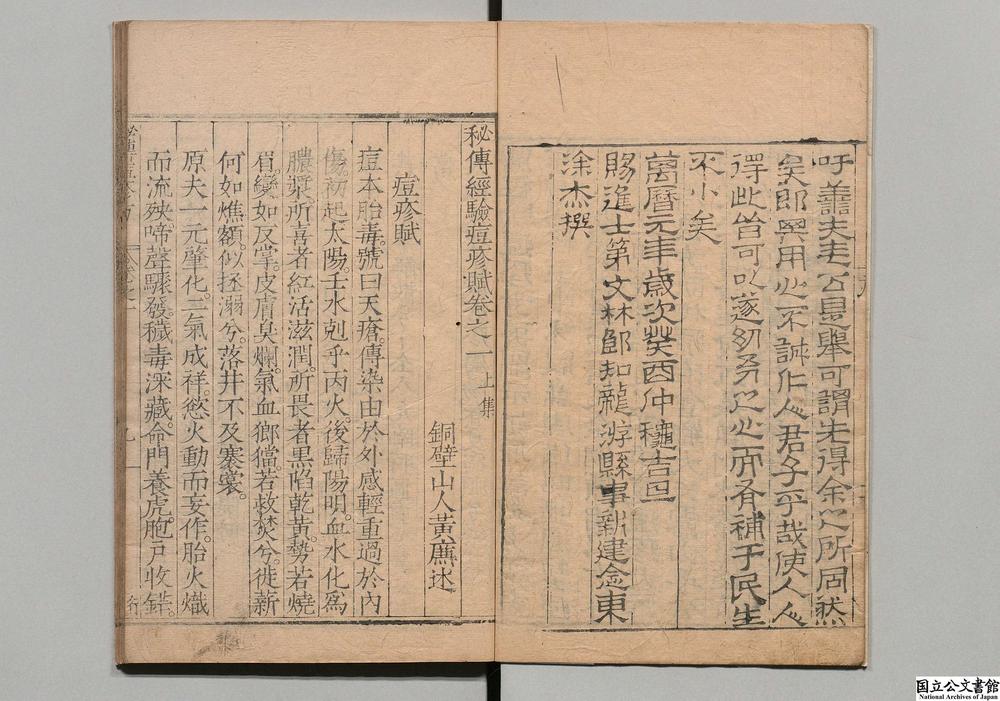 吁善夫圭公是舉可謂先得余心所同然
矣郎與用心不誠仁人君子乎哉使人人
得此皆可以遂幼幼之心而有補于民生
不小矣
萬曆元年歲次癸酉仲穐吉旦
賜進士第文林郎知龍游縣事新建念東
涂杰撰
秘傳經驗痘疹賦卷之一 上集
銅壁山人黃廉述
痘疹賦
痘本胎毒。號曰天瘡。傳染由於外感輕重過於內
傷。初起太陽。壬水剋乎丙火。後歸陽明。血水化為
膿漿。所喜者紅活滋潤。所畏者黑陷乾黃。勢若燒
眉。變如反掌。皮膚臭爛。氣血鄉鐺。若救焚兮。徙薪
何如燋額。似拯溺兮。落井不及褰裳。
原夫一元肇化。三氣成祥。慾火動而妄作。胎火熾
而流殃。啼聲驟發。穢毒深藏。命門養虎。胞戶收錯。
国立公文書館
National Archives of Japan